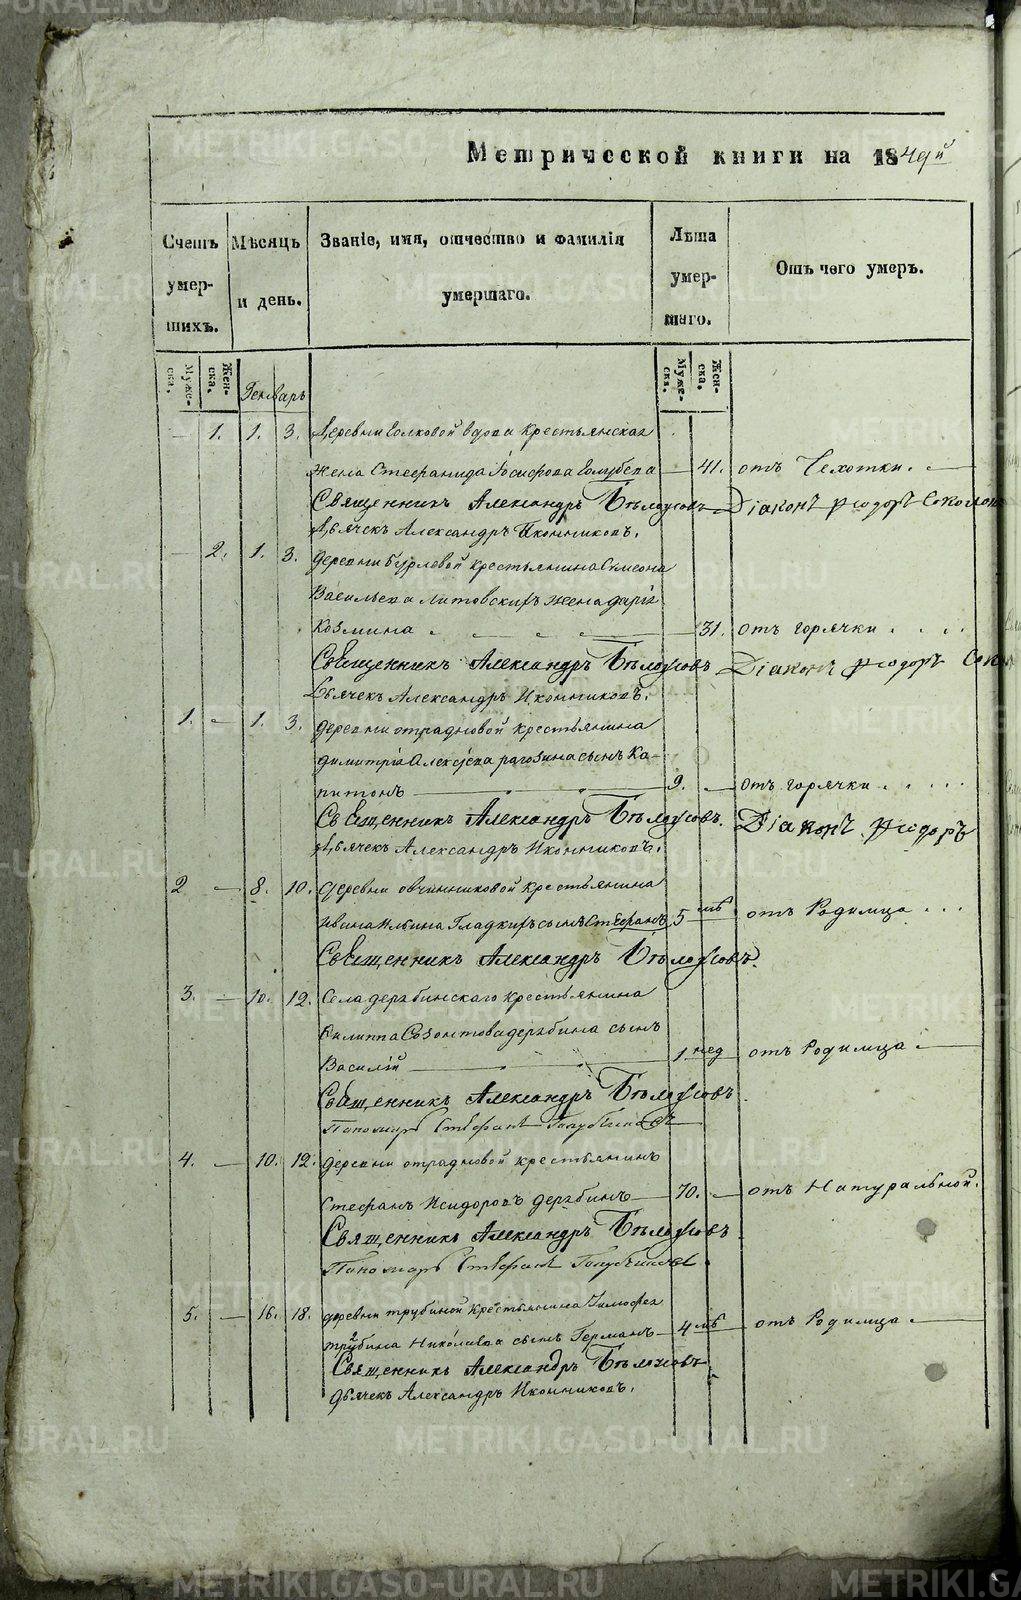 Метрической книги на 1849й
Счетъ умер- шихъ.
Мѣсяцъ и день.
Званіе, имя, отчество и фамилія умершаго.
Лѣта умер- шаго.
Отъ чего умеръ.
Муже- ска.
Жен- ска.
Генварь
Муже- ска.
Жен- ска.
— 1. 1. 3. Деревни Волковой вдова Крестьянская
жена Стефанида Іосифова Голубева — 41. отъ Чехотки.
Священникъ Александръ Бѣлоусовъ Діаконъ Ѳеодоръ Соколов
Дьячекъ Александръ Иконниковъ.
— 2. 1. 3. деревни бурлевой крестьянина Симеона
Васильева Литовскихъ жена дарія
Козмина 31. отъ горячки
Священникъ Александръ Бѣлоусовъ Діаконъ Ѳеодоръ Сок
Дьячекъ Александръ Иконниковъ.
1. — 1. 3. деревни отрадновой крестьянина
димитрія Алексѣева рагозина сынъ Ка-
питонъ 9. — отъ горячки
Священникъ Александръ Бѣлоусовъ. Діаконъ Ѳеодоръ
Дьячекъ Александръ Иконниковъ.
2 — 8. 10. деревни овчинниковой крестьянина
Ивана Ильина Гладкихъ сынъ Стефанъ 5 мѣ отъ Родимца
Священникъ Александръ Бѣлоусовъ.
3. — 10. 12. Села дерябинскаго крестьянина
Филиппа Созонтова дерябина сынъ
Василій 1 нед отъ Родимца
Священникъ Александръ Бѣлоусовъ
Пономарь Стефанъ
4. — 10. 12. деревни отрадновой крестьянинъ
Стефанъ Исидоровъ дерябинъ — 70. — отъ Натуральной.
Священникъ Александръ Бѣлоусовъ
Пономарь Стефанъ
5. — 16. 18. деревни трубиной крестьянина Тимофея
трубина Николаева сынъ Германъ — 4 мѣ отъ Родимца
Священникъ Александръ Бѣлоусовъ
дьячекъ Александръ Иконниковъ.
METRIKI.GASO-URAL.RU